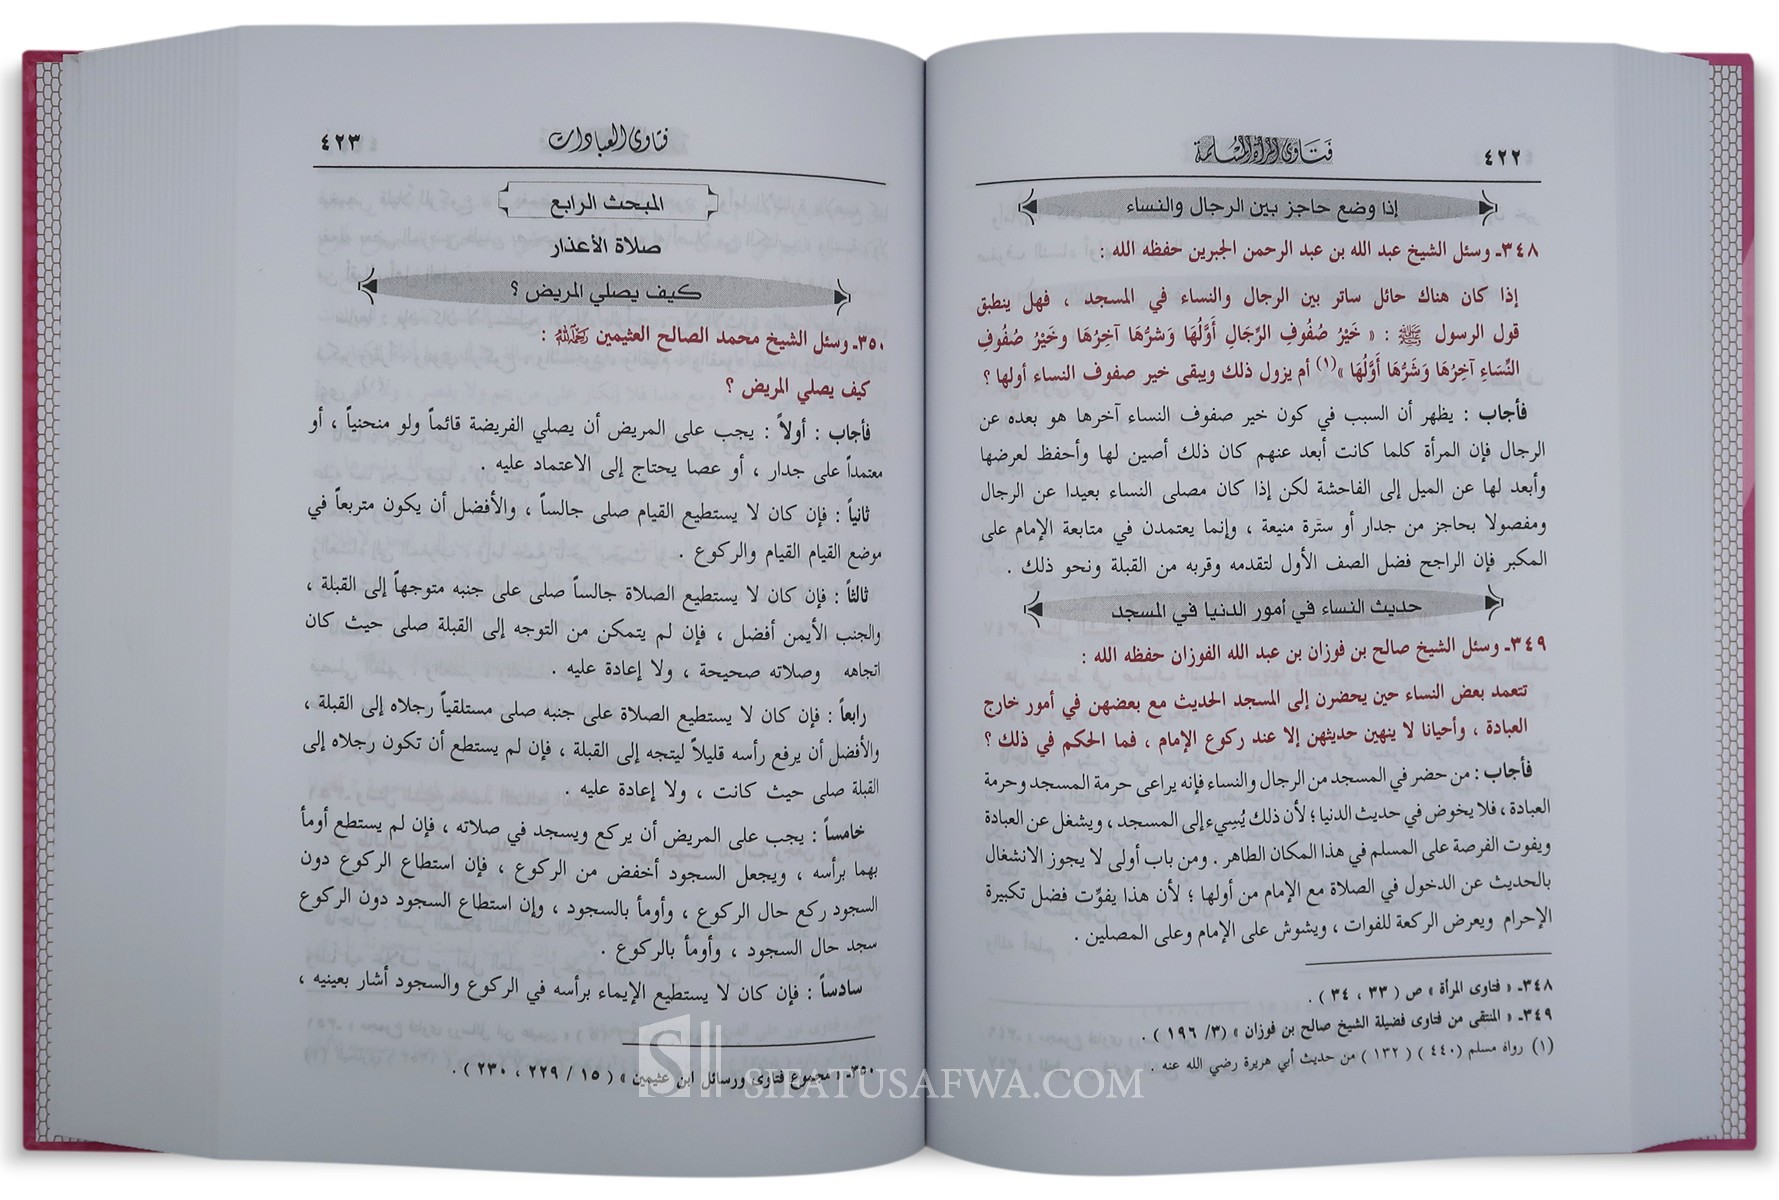 ٤٢٢
فتاوى المرأة المسلمة
إذا وضع حاجز بين الرجال والنساء
٣٤٨ـ وسئل الشيخ عبد الله بن عبد الرحمن الجبرين حفظه الله :
إذا كان هناك حائل ساتر بين الرجال والنساء في المسجد ، فهل ينطبق
قول الرسول ﷺ : « خَيْرُ صُفُوفِ الرِّجَالِ أَوَّلُهَا وَشَرُّهَا آخِرُهَا وخَيْرُ صُفُوفِ
النِّسَاءِ آخِرُهَا وَشَرُّهَا أَوَّلُهَا »(١) أم يزول ذلك ويبقى خير صفوف النساء أولها ؟
فأجاب : يظهر أن السبب في كون خير صفوف النساء آخرها هو بعده عن
الرجال فإن المرأة كلما كانت أبعد عنهم كان ذلك أصين لها وأحفظ لعرضها
وأبعد لها عن الميل إلى الفاحشة لكن إذا كان مصلى النساء بعيدا عن الرجال
ومفصولا بحاجز من جدار أو سترة منيعة ، وإنما يعتمدن في متابعة الإمام على
المكبر فإن الراجح فضل الصف الأول لتقدمه وقربه من القبلة ونحو ذلك .
حديث النساء في أمور الدنيا في المسجد
٣٤٩ـ وسئل الشيخ صالح بن فوزان بن عبد الله الفوزان حفظه الله :
تتعمد بعض النساء حين يحضرن إلى المسجد الحديث مع بعضهن في أمور خارج
العبادة ، وأحيانا لا ينهين حديثهن إلا عند ركوع الإمام ، فما الحكم في ذلك ؟
فأجاب : من حضر في المسجد من الرجال والنساء فإنه يراعى حرمة المسجد وحرمة
العبادة ، فلا يخوض في حديث الدنيا ؛ لأن ذلك يُسِيء إلى المسجد ، ويشغل عن العبادة
ويفوت الفرصة على المسلم في هذا المكان الطاهر . ومن باب أولى لا يجوز الانشغال
بالحديث عن الدخول في الصلاة مع الإمام من أولها ؛ لأن هذا يفوِّت فضل تكبيرة
الإحرام ويعرض الركعة للفوات ، ويشوش على الإمام وعلى المصلين .
٣٤٨ـ « فتاوى المرأة » ص ( ٣٣ ، ٣٤ ) .
٣٤٩ـ « المنتقى من فتاوى فضيلة الشيخ صالح بن فوزان » (٣/ ١٩٦ ) .
(١) رواه مسلم (٤٤٠) ( ١٣٢ ) من حديث أبي هريرة رضي الله عنه .
فتاوى العبادات
٤٢٣
المبحث الرابع
صلاة الأعذار
كيف يصلي المريض ؟
٣٥٠ـ وسئل الشيخ محمد الصالح العثيمين رحمه الله :
كيف يصلي المريض ؟
فأجاب : أولاً : يجب على المريض أن يصلي الفريضة قائماً ولو منحنياً ، أو
معتمداً على جدار ، أو عصا يحتاج إلى الاعتماد عليه .
ثانياً : فإن كان لا يستطيع القيام صلى جالساً ، والأفضل أن يكون متربعاً في
موضع القيام القيام والركوع .
ثالثاً : فإن كان لا يستطيع الصلاة جالساً صلى على جنبه متوجهاً إلى القبلة ،
والجنب الأيمن أفضل ، فإن لم يتمكن من التوجه إلى القبلة صلى حيث كان
اتجاهه وصلاته صحيحة ، ولا إعادة عليه .
رابعاً : فإن كان لا يستطيع الصلاة على جنبه صلى مستلقياً رجلاه إلى القبلة ،
والأفضل أن يرفع رأسه قليلاً ليتجه إلى القبلة ، فإن لم يستطع أن تكون رجلاه إلى
القبلة صلى حيث كانت ، ولا إعادة عليه .
خامساً : يجب على المريض أن يركع ويسجد في صلاته ، فإن لم يستطع أومأ
بهما برأسه ، ويجعل السجود أخفض من الركوع ، فإن استطاع الركوع دون
السجود ركع حال الركوع ، وأومأ بالسجود ، وإن استطاع السجود دون الركوع
سجد حال السجود ، وأومأ بالركوع .
سادساً : فإن كان لا يستطيع الإيماء برأسه في الركوع والسجود أشار بعينيه ،
٣٥٠ـ « مجموع فتاوى ورسائل ابن عثيمين » ( ١٥ / ٢٢٩ ، ٢٣٠ ) .
SIFATUSAFWA.COM